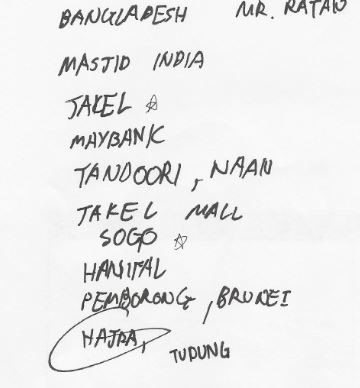 BANGLADESH MR. RATAN
MASJID INDIA
JAKEL ☆
MAYBANK
TANDOORI, NAAN
JAKEL MALL
SOGO ☆
HANIFAL
PEMBORONG, BRUNEI
HAJRA,
TUDUNG